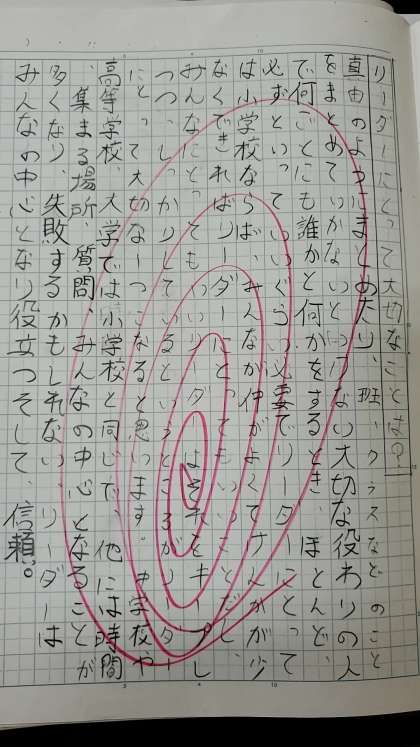 リーダーにとって大切なことは?
真由のようにまとめたり、班、クラスなどのこと
をまとめていかないといけない大切な役わりの人
で何ごとにも誰かと何かをするとき、ほとんど、
必ずといっていいぐらい必要でリーダーにとって
は小学校ならば、みんなが仲がよくてけんかが少
なくできればリーダーにとってもいいことだし、
みんなにとってもいいリーダーはそれをキープし
つつ、しっかりしているというところがリーダー
にとって大切な一つになると思います。中学校や
高等学校、大学では小学校と同じで、他には時間
、集まる場所、質問、みんなの中心となることが
多くなり、失敗するかもしれない、リーダーは
みんなの中心となり役立つそして、信頼。